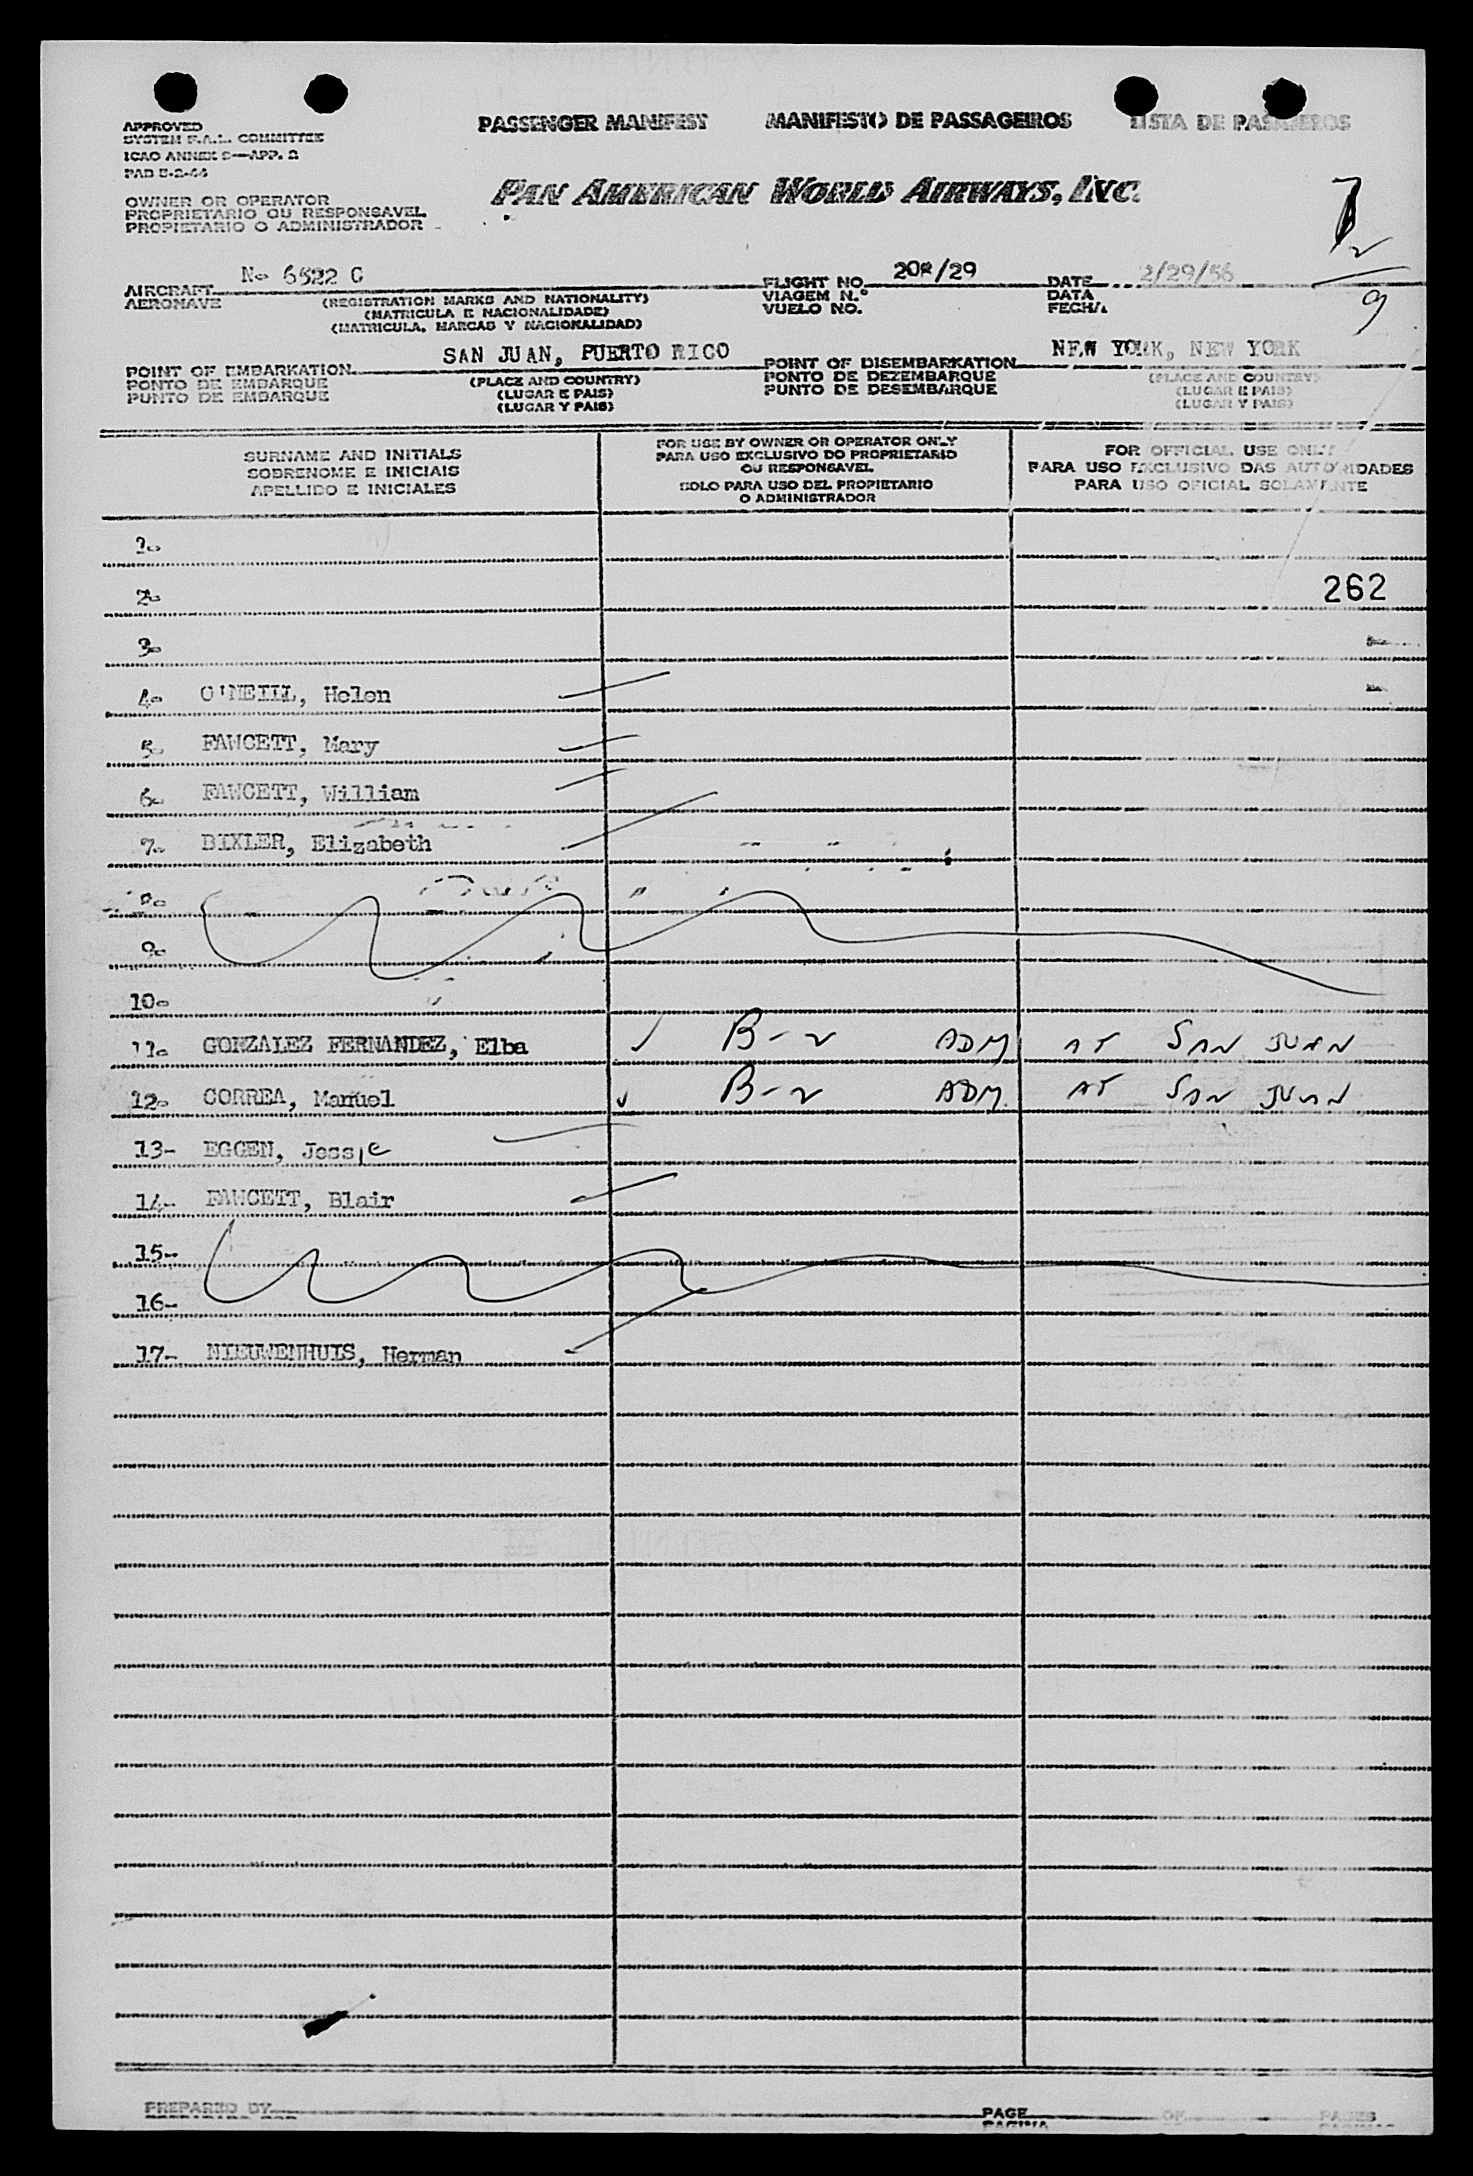 PASSENGER MANIFEST MANIFESTO DE PASSAGEIROS LISTA DE PASAJEROS
APPROVED
SYSTEM F.A.L. COMMITTEE
ICAO ANNEX 9—APP. 2
PAN AMERICAN WORLD AIRWAYS, INC.
OWNER OR OPERATOR
PROPRIETARIO OU RESPONSAVEL
PROPIETARIO O ADMINISTRADOR
7
2
9
AIRCRAFT N- 6522 C FLIGHT NO. 202/29 DATE 2/29/56
AERONAVE (REGISTRATION MARKS AND NATIONALITY) VIAGEM N.° DATA
(MATRICULA E NACIONALIDADE) VUELO NO. FECHA
(MATRICULA, MARCAS Y NACIONALIDAD)
POINT OF EMBARKATION SAN JUAN, PUERTO RICO POINT OF DISEMBARKATION NEW YORK, NEW YORK
PONTO DE EMBARQUE (PLACE AND COUNTRY) PONTO DE DEZEMBARQUE (PLACE AND COUNTRY)
PUNTO DE EMBARQUE (LUGAR E PAIS) PUNTO DE DESEMBARQUE (LUGAR E PAIS)
(LUGAR Y PAIS) (LUGAR Y PAIS)
SURNAME AND INITIALS
SOBRENOME E INICIAIS
APELLIDO E INICIALES
FOR USE BY OWNER OR OPERATOR ONLY
PARA USO EXCLUSIVO DO PROPRIETARIO
OU RESPONSAVEL
SOLO PARA USO DEL PROPIETARIO
O ADMINISTRADOR
FOR OFFICIAL USE ONLY
PARA USO EXCLUSIVO DAS AUTORIDADES
PARA USO OFICIAL SOLAMENTE
1-
2- 262
3-
4- O'NEILL, Helen
5- FAWCETT, Mary
6- FAWCETT, William
7- BIXLER, Elizabeth
8-
9-
10-
11- GONZALEZ FERNANDEZ, Elba B-2 ADM AT SAN JUAN
12- CORREA, Manuel B-2 ADM. AT SAN JUAN
13- EGGEN, Jessie
14- FAWCETT, Blair
15-
16-
17- NIEUWENHUIS, Herman
PREPARED BY PAGE OF PAGES